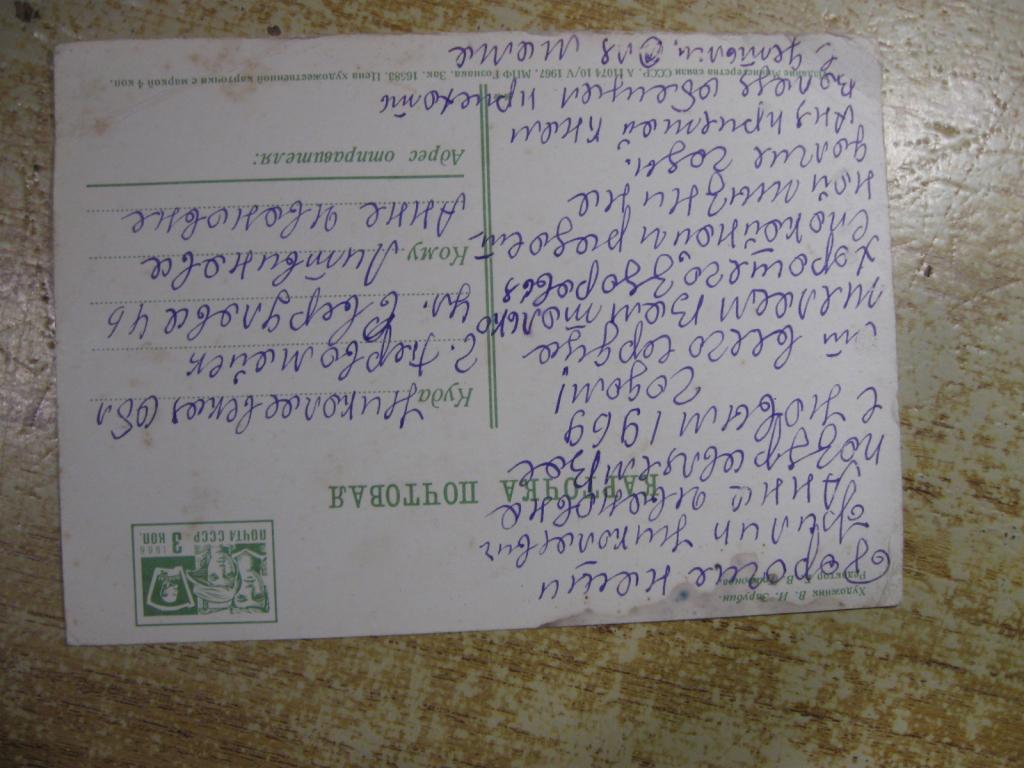 Художник В. И. Зарубин
Редактор Е. В.
КАРТОЧКА ПОЧТОВАЯ
ПОЧТА СССР
1966
3 КОП.
Дорогие наши
Филип Николаевич
Анна Ивановна
поздравляем Вас
с Новым 1969
Годом!
от всего сердца
желаем Вам только
хорошего здоровья
спокойной и радост-
ной жизни на
долгие годы.
приехать
Куда Николаевская обл
г. Первомайск
ул. Свердлова 46
Кому Литвиновне
Анне Ивановне
Адрес отправителя:
Издание Министерства связи СССР. А 11074 10/V 1967. МПФ Гознака. Зак. 16583. Цена художественной карточки с маркой 4 коп.